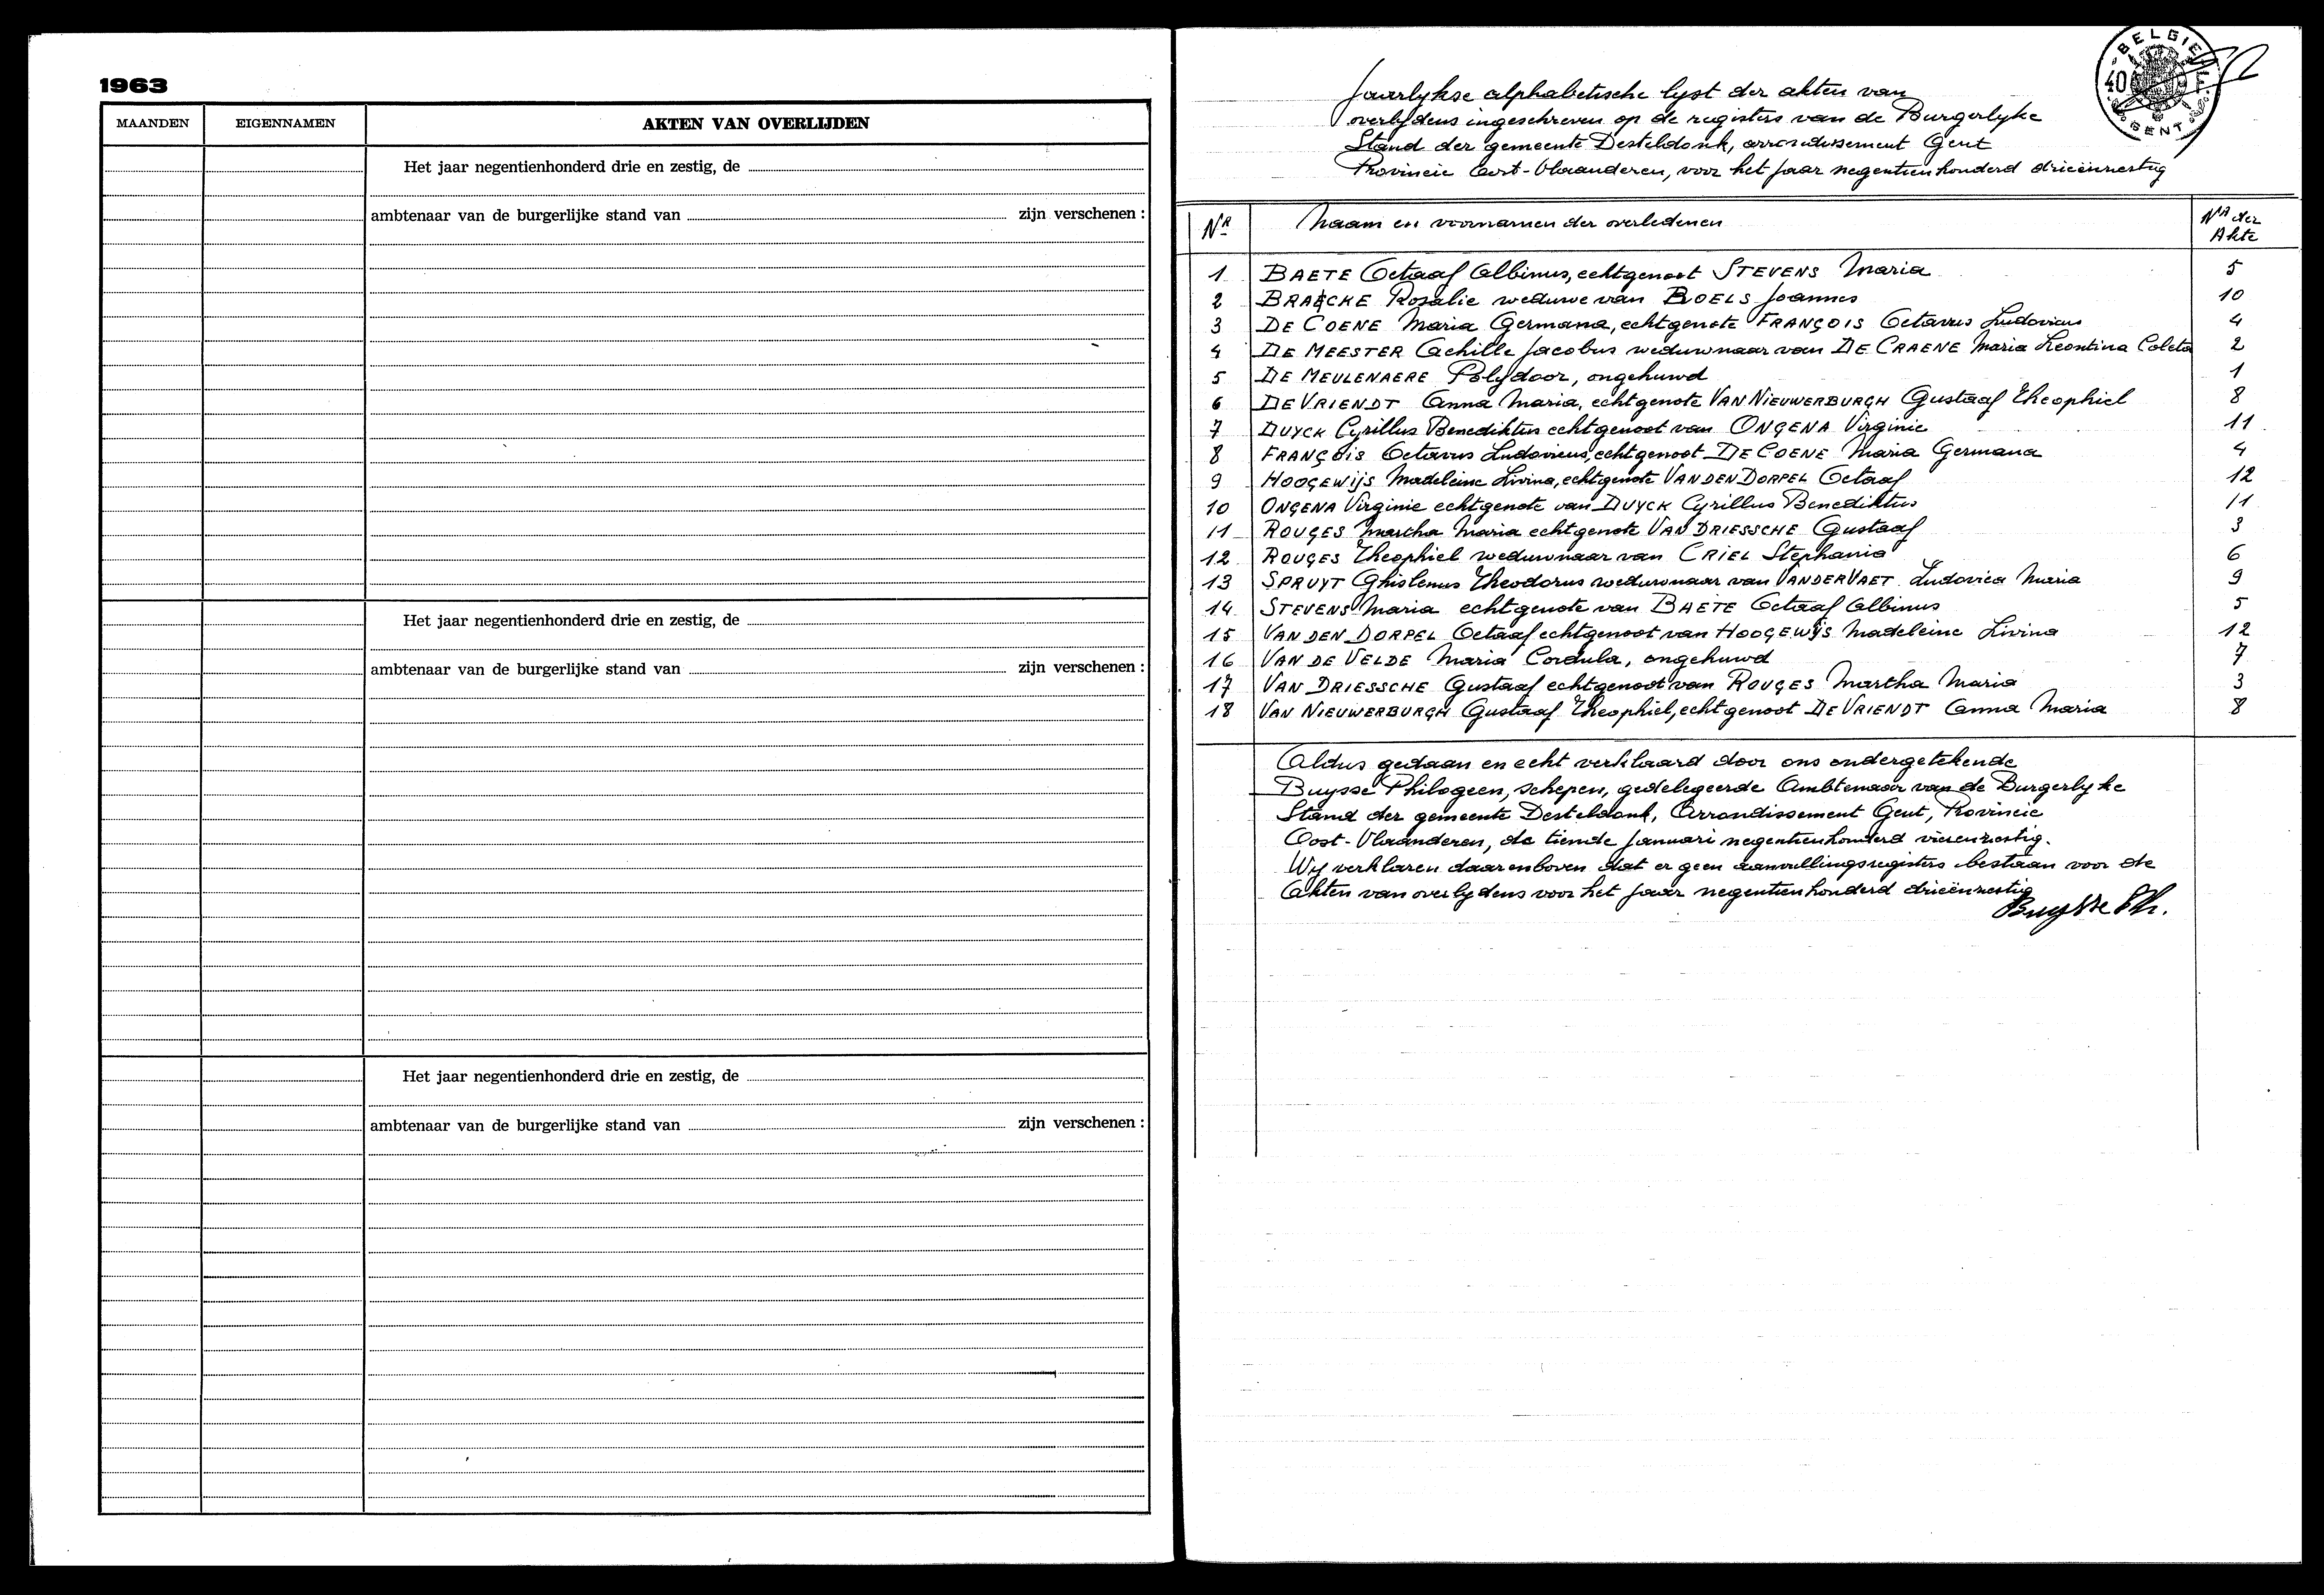 1963
MAANDEN EIGENNAMEN AKTEN VAN OVERLIJDEN
Het jaar negentienhonderd drie en zestig, de
ambtenaar van de burgerlijke stand van zijn verschenen :
Het jaar negentienhonderd drie en zestig, de
ambtenaar van de burgerlijke stand van zijn verschenen :
Het jaar negentienhonderd drie en zestig, de
ambtenaar van de burgerlijke stand van zijn verschenen :
BELGIE
40 F
GENT
Jaarlykse alphabetische lyst der akten van
overlydens ingeschreven op de registers van de Burgerlyke
Stand der gemeente Desteldonk, arrondissement Gent
Provincie Oost-Vlaanderen, voor het jaar negentienhonderd drieënzestig
Nr Naam en voornamen der overledenen Nr der Akte
1 BAETE Octaaf Albinus, echtgenoot STEVENS Maria 5
2 BRAECKE Rosalie weduwe van BOELS Joannes 10
3 DE COENE Maria Germana, echtgenote FRANÇOIS Octavus Ludovicus 4
4 DE MEESTER Achille Jacobus weduwnaar van DE CRAENE Maria Leontina Coleta 2
5 DE MEULENAERE Polydoor, ongehuwd 1
6 DE VRIENDT Anna Maria, echtgenote VAN NIEUWERBURGH Gustaaf Theophiel 8
7 DUYCK Cyrillus Benediktus echtgenoot van ONGENA Virginie 11
8 FRANÇOIS Octavus Ludovicus, echtgenoot DE COENE Maria Germana 4
9 HOOGEWIJS Madeleine Livina, echtgenote VAN DEN DORPEL Octaaf 12
10 ONGENA Virginie echtgenote van DUYCK Cyrillus Benediktus 11
11 ROUGES Martha Maria echtgenote VAN DRIESSCHE Gustaaf 3
12 ROUGES Theophiel weduwnaar van CRIEL Stephania 6
13 SPRUYT Ghislenus Theodorus weduwnaar van VANDERVAET Ludovica Maria 9
14 STEVENS Maria echtgenote van BAETE Octaaf Albinus 5
15 VAN DEN DORPEL Octaaf echtgenoot van HOOGEWIJS Madeleine Livina 12
16 VAN DE VELDE Maria Cordula, ongehuwd 7
17 VAN DRIESSCHE Gustaaf echtgenoot van ROUGES Martha Maria 3
18 VAN NIEUWERBURGH Gustaaf Theophiel, echtgenoot DE VRIENDT Anna Maria 8
Aldus gedaan en echt verklaard door ons ondergetekende
Buysse Philogeen, schepen, gedelegeerde Ambtenaar van de Burgerlyke
Stand der gemeente Desteldonk, Arrondissement Gent, Provincie
Oost-Vlaanderen, de tiende Januari negentienhonderd vierenzestig.
Wij verklaren daarenboven dat er geen aanvullingsregisters bestaan voor de
Akten van overlydens voor het jaar negentienhonderd drieënzestig
Buysse Ph.